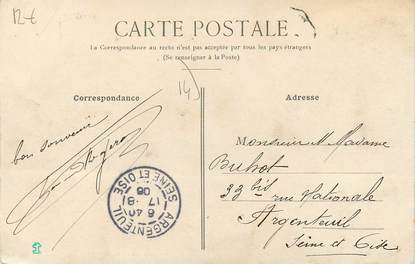 12€
CARTE POSTALE
La Correspondance au recto n'est pas acceptée par tous les pays étrangers
(Se renseigner à la Poste)
14)
Correspondance
Adresse
bon souvenir
Monsieur M Madame
Buhot
33 bis rue Nationale
Argenteuil
Seine et Oise
ARGENTEUIL
6 40
17 - 8
06
SEINE ET OISE